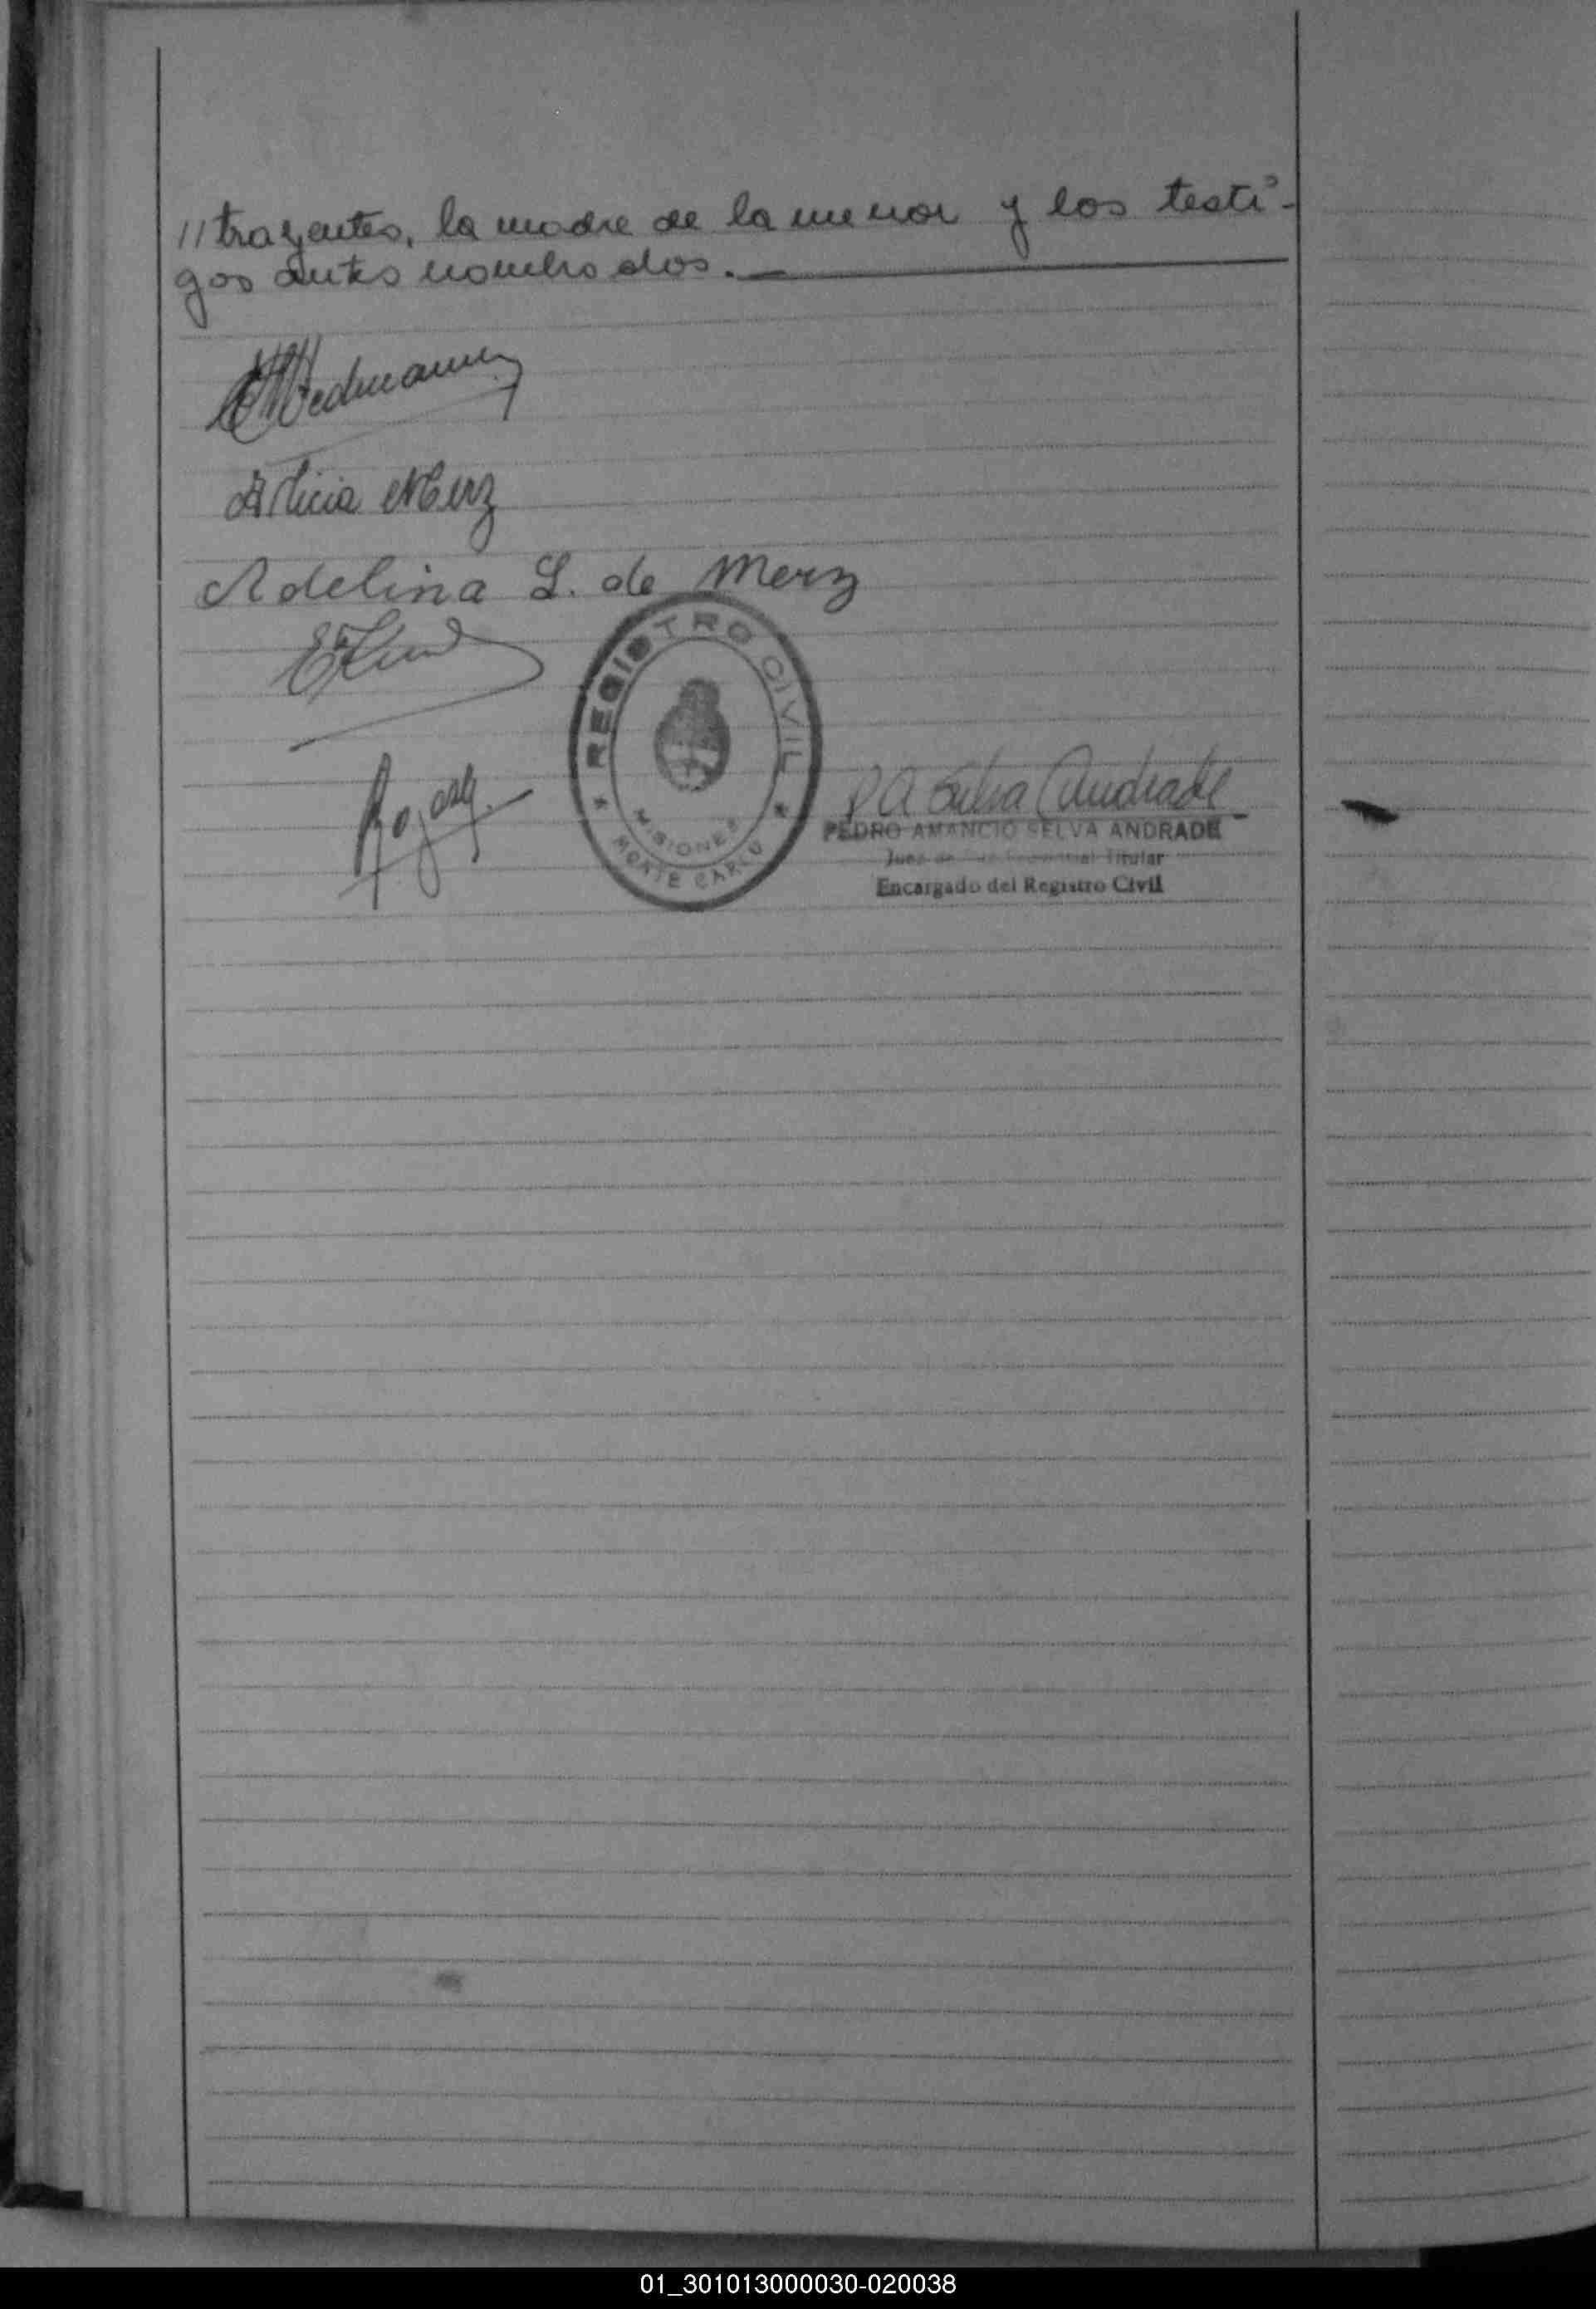 //trayentes, la madre de la menor y los testi-
gos antes nombrados.
Alicia Merz
Adelina L. de Merz
REGISTRO CIVIL
MISIONES
MONTE CARLO
P A Selva Andrade
PEDRO AMANCIO SELVA ANDRADE
Juez de Titular
Encargado del Registro Civil
01_301013000030-020038